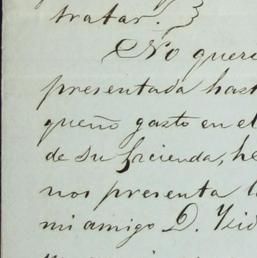 tratar.
No quere
presentada hast
queño gasto en el
de su hcienda, he
nos presenta l
mi amigo D.